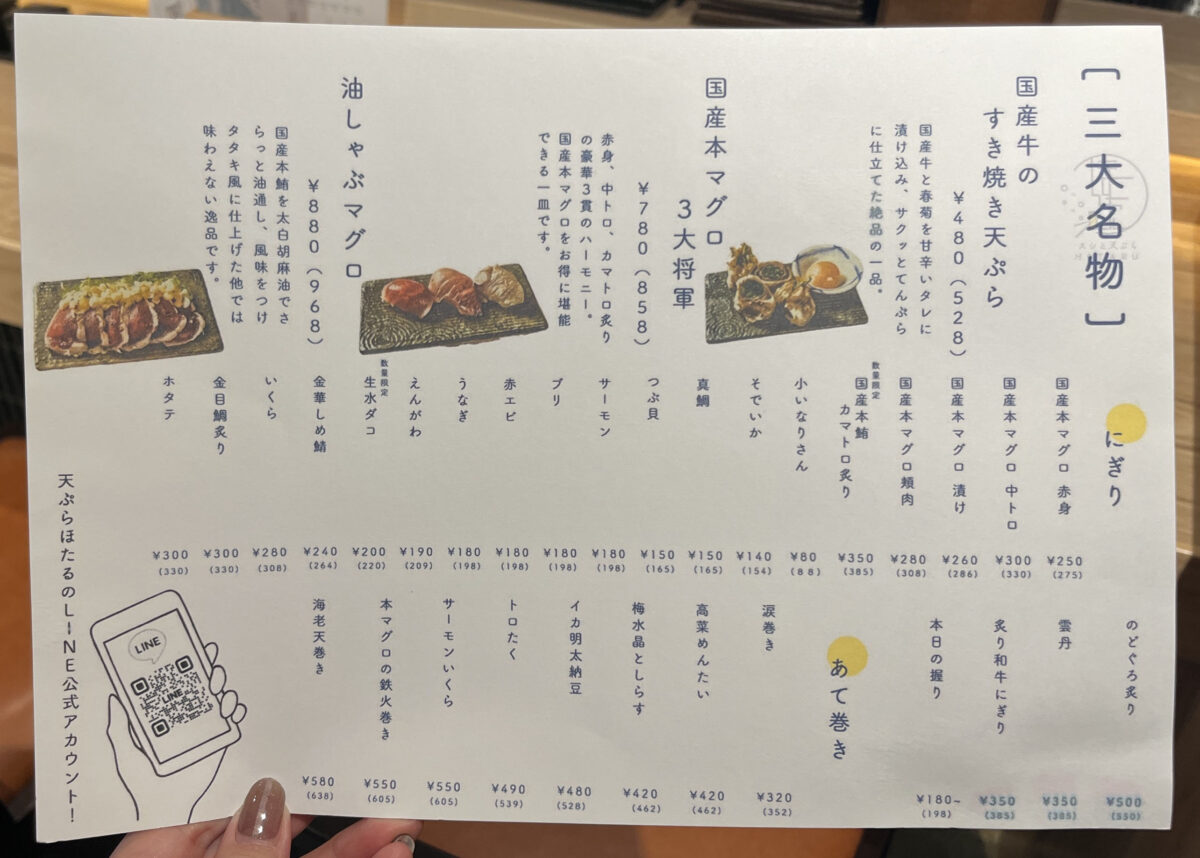 ［三大名物］
国産牛の
すき焼き天ぷら
¥480（528）
国産牛と春菊を甘辛いタレに
漬け込み、サクッとてんぷら
に仕立てた絶品の一品。
国産本マグロ
3大将軍
¥780（858）
赤身、中トロ、カマトロ炙り
の豪華3貫のハーモニー。
国産本マグロをお得に堪能
できる一皿です。
油しゃぶマグロ
¥880（968）
国産本鮪を太白胡麻油でさ
らっと油通し、風味をつけ
タタキ風に仕上げた他では
味わえない逸品です。
にぎり
国産本マグロ 赤身 ¥250 (275)
国産本マグロ 中トロ ¥300 (330)
国産本マグロ 漬け ¥260 (286)
国産本マグロ頬肉 ¥280 (308)
数量限定
国産本鮪
カマトロ炙り ¥350 (385)
小いなりさん ¥80 (88)
そでいか ¥140 (154)
真鯛 ¥150 (165)
つぶ貝 ¥150 (165)
サーモン ¥180 (198)
ブリ ¥180 (198)
赤エビ ¥180 (198)
うなぎ ¥180 (198)
えんがわ ¥190 (209)
数量限定
生水ダコ ¥200 (220)
金華しめ鯖 ¥240 (264)
いくら ¥280 (308)
金目鯛炙り ¥300 (330)
ホタテ ¥300 (330)
のどぐろ炙り ¥500 (550)
雲丹 ¥350 (385)
炙り和牛にぎり ¥350 (385)
本日の握り ¥180~ (198)
あて巻き
涙巻き ¥320 (352)
高菜めんたい ¥420 (462)
梅水晶としらす ¥420 (462)
イカ明太納豆 ¥480 (528)
トロたく ¥490 (539)
サーモンいくら ¥550 (605)
本マグロの鉄火巻き ¥550 (605)
海老天巻き ¥580 (638)
天ぷらほたるのLINE公式アカウント！
LINE
LINE